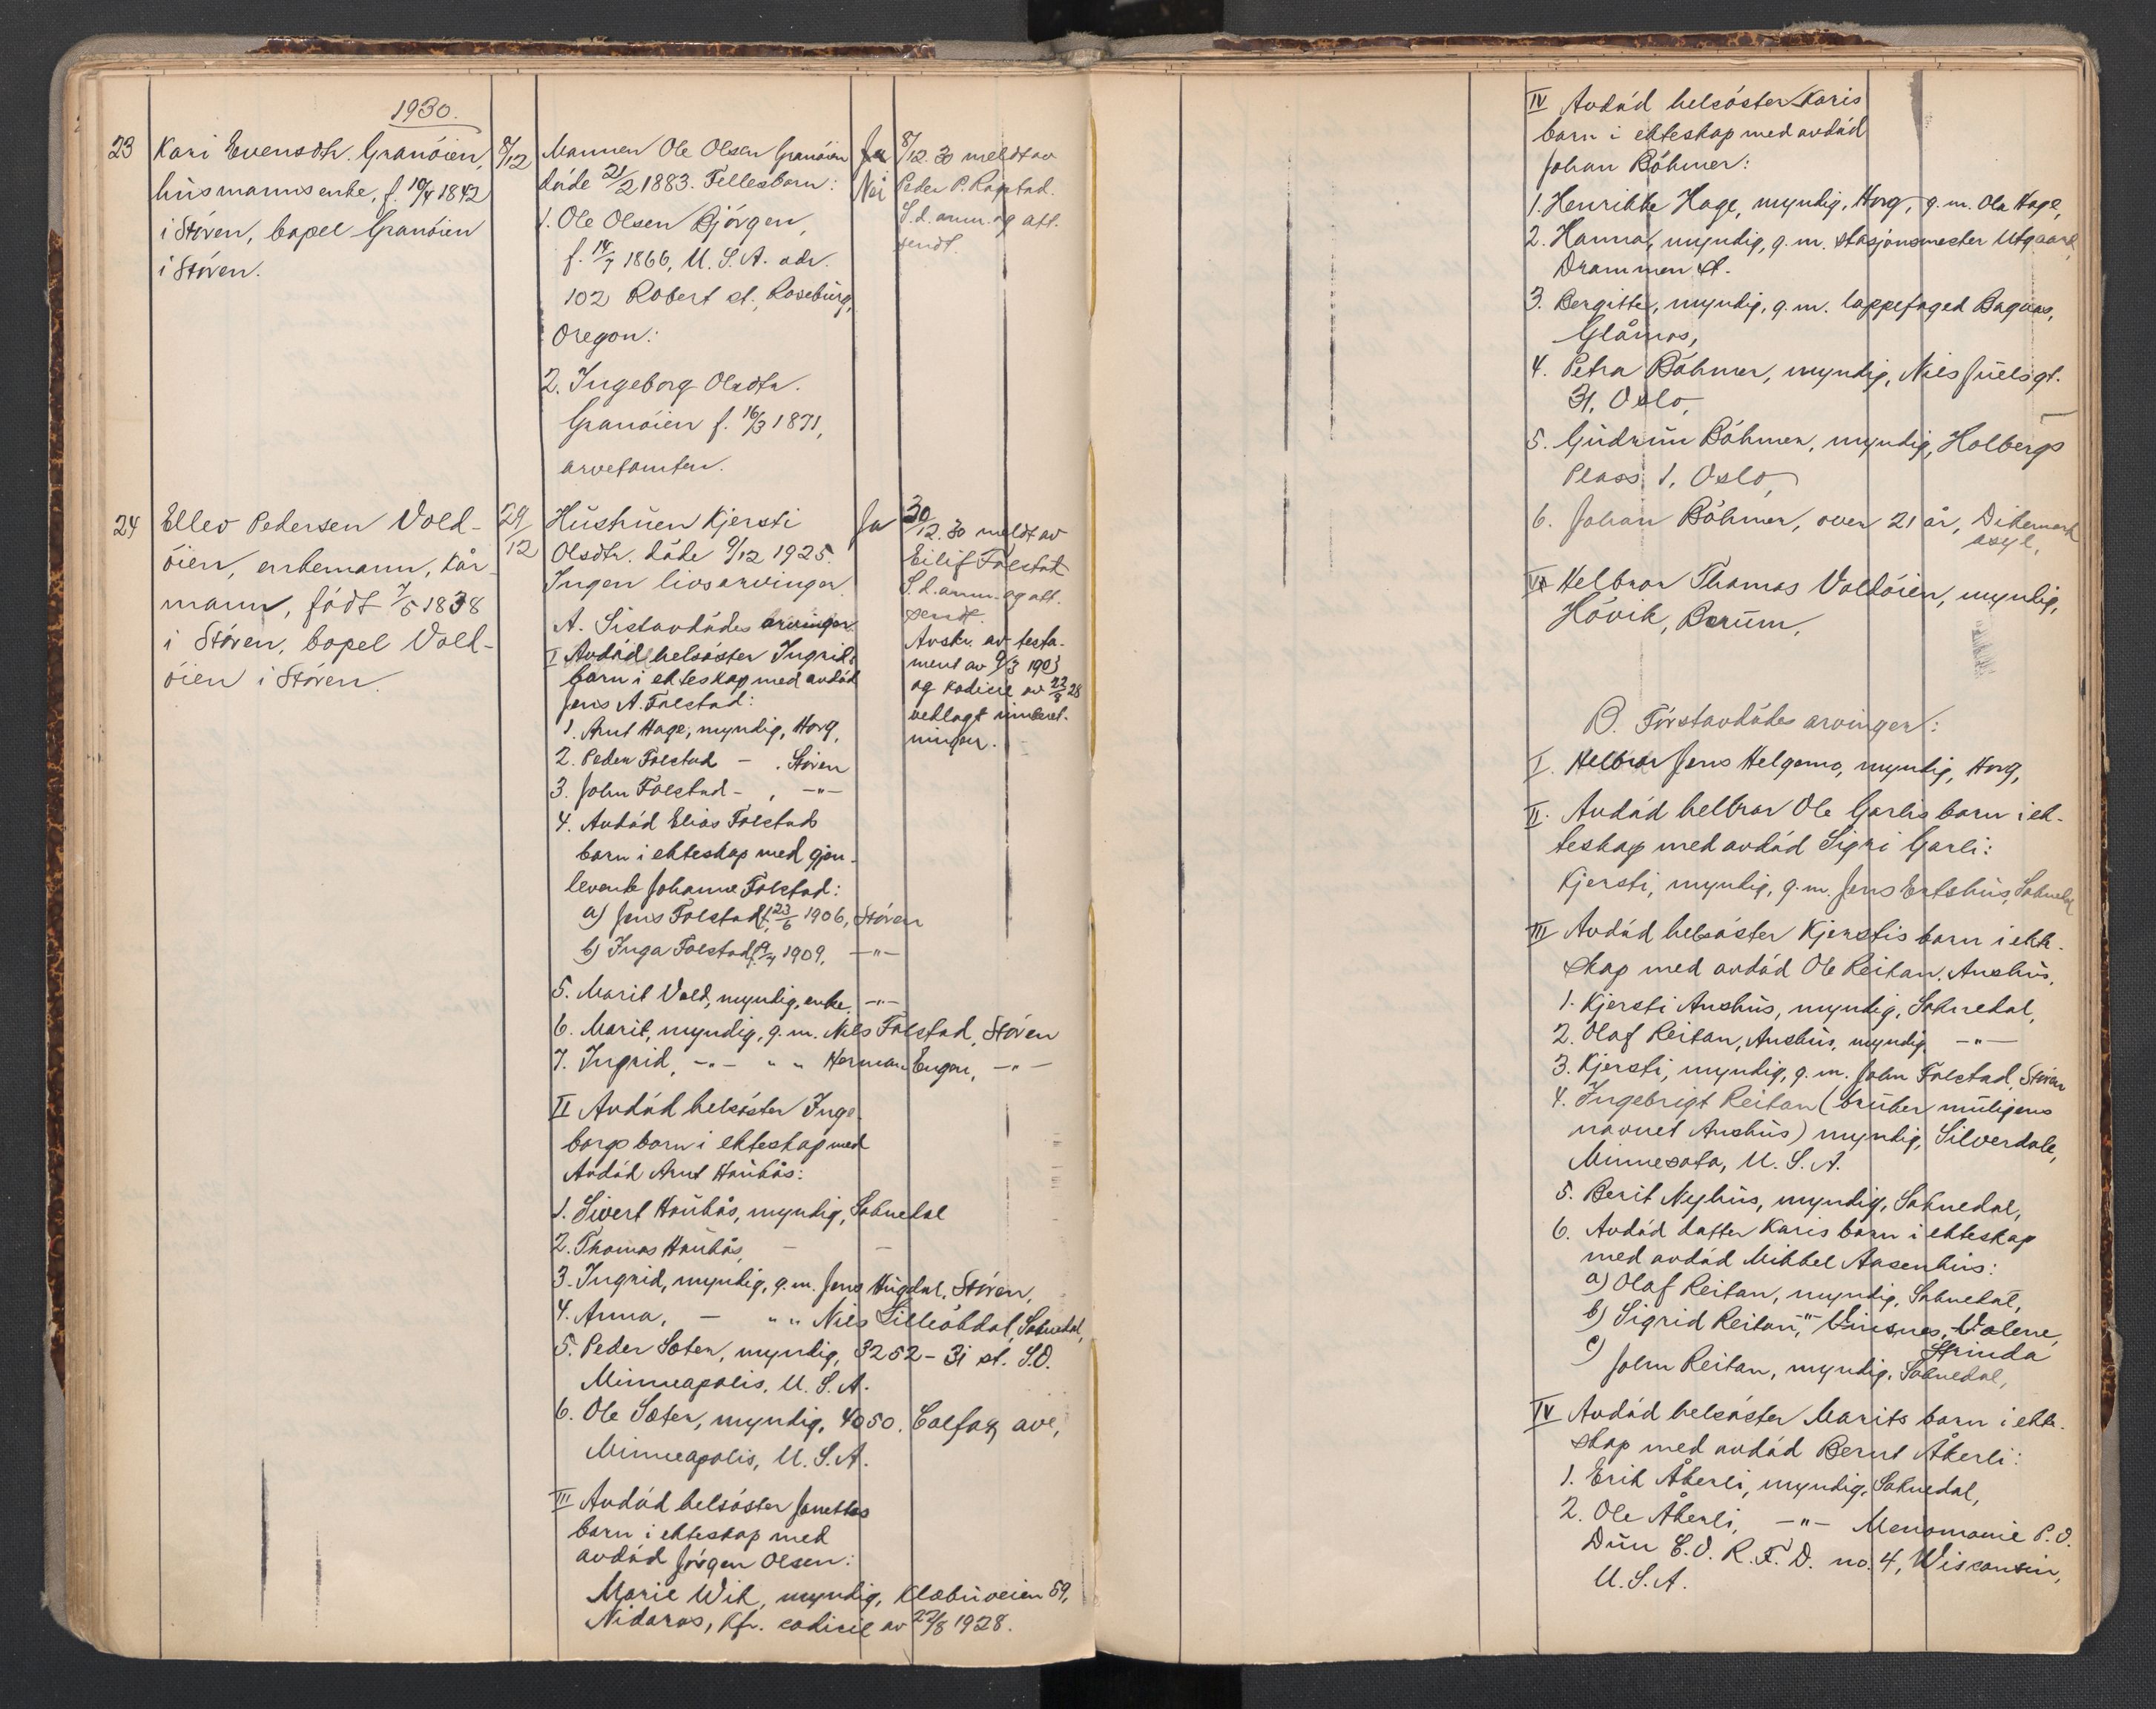 1930.
23
Kari Evensdtr. Granöien,
husmannsenke, f. 10/4 1842
i Stören, bopel Granöien
i Stören.
8/12
Mannen Ole Olsen Granöien
döde 21/2 1883. Fellesbarn:
1. Ole Olsen Björgen,
f. 14/7 1866, U.S.A. adr.
102 Robert st., Roseburg,
Oregon.
2. Ingeborg Olsdtr.
Granöien f. 16/3 1871,
arvetomten.
Ja
Nei
8/12. 30 meldt av
Peder P. Rogstad.
S.d. anm. og att.
sendt.
24
Ellev Pedersen Vold-
öien, enkemann, kår-
mann, födt 7/5 1838
i Stören, bopel Vold-
öien i Stören.
29/12
Hustruen Kjersti
Olsdtr. döde 9/12 1925.
Ingen livsarvinger.
A. Sistavdödes arvinger.
I Avdöd helsöster Ingrids
barn i ekteskap med avdöd
Jens A. Folstad:
1. Arnt Hage, myndig, Horg,
2. Peder Folstad - . Stören
3. John Folstad - , -"-
4. Avdöd Elias Folstads
barn i ekteskap med gjen-
levende Johanne Folstad:
a) Jens Folstad f. 23/6 1906, Stören
b) Inga Folstad f. 19/4 1909, -"-
5. Marit Vold, myndig, enke, -"-
6. Marit, myndig, g.m. Nils Folstad, Stören
7. Ingrid, -"- " " Herman Engen, -"-
II Avdöd helsöster Inge-
borgs barn i ekteskap med
Avdöd Arnt Haukås:
1. Sivert Haukås, myndig, Soknedal
2. Thomas Haukås, - -
3. Ingrid, myndig, g.m. Jens Hugdal, Stören,
4. Anna, - " " Nils Lilleökdal, Soknedal,
5. Peder Sæter, myndig, 3252 - 31 st. S.O.
Minneapolis, U.S.A.
6. Ole Sæter, myndig, 4050. Colfax ave,
Minneapolis, U.S.A.
III Avdöd helsöster Janettes
barn i ekteskap med
avdöd Jörgen Olsen:
Marie Wik, myndig, Klæbuveien 59,
Nidaros, Kfr. codicil av 22/8 1928.
Ja
30/12. 30 meldt av
Eilif Folstad
S.d. anm. og att.
sendt.
Avskr. av testa-
ment av 9/3 1903
og kodicil av 22/8 28
vedlagt innberet-
ningen.
IV Avdöd helsöster Karis
barn i ekteskap med avdöd
Johan Böhmer:
1. Henrikke Hage, myndig, Horg, g.m. Ola Hage,
2. Hanna, myndig, g.m. stasjonsmester Utgaard,
Drammen st.
3. Bergitte, myndig, g.m. lappefoged Bagaas,
Glåmos,
4. Petra Böhmer, myndig, Niels Juelsgt.
31, Oslo,
5. Gudrun Böhmer, myndig, Holbergs
Plass 1, Oslo,
6. Johan Böhmer, over 21 år, Dikemark
asyl,
V Helbror Thomas Voldöien, myndig,
Hövik, Bærum,
B. Förstavdödes arvinger:
I. Helbror Jens Helgemo, myndig, Horg,
II. Avdöd helbror Ole Garlis barn i ek-
teskap med avdöd Sigri Garli:
Kjersti, myndig, g.m. Jens Ertshus, Soknedal
III Avdöd helsöster Kjerstis barn i ekte-
skap med avdöd Ole Reitan. Aushus,
1. Kjersti Aushus, myndig, Soknedal,
2. Olaf Reitan, Aushus, myndig, -"-
3. Kjersti, myndig, g.m. John Folstad, Stören
4. Ingebrigt Reitan (bruker muligens
navnet Aushus) myndig, Silverdale,
Minnesota, U.S.A.
5. Berit Nyhus, myndig, Soknedal,
6. Avdöd datter Karis barn i ekteskap
med avdöd Mikkel Aasenhus:
a) Olaf Reitan, myndig, Soknedal,
b) Sigrid Reitan, -"- Vinsnes, Volene,
Strinda
c) John Reitan, myndig, Soknedal,
IV Avdöd helsöster Marits barn i ekte-
skap med avdöd Bernt Åkerli:
1. Erik Åkerli, myndig, Soknedal,
2. Ole Åkerli, -"- Menomonie P.O.
Dun C.O. R.F.D. no. 4, Wisconsin,
U.S.A.